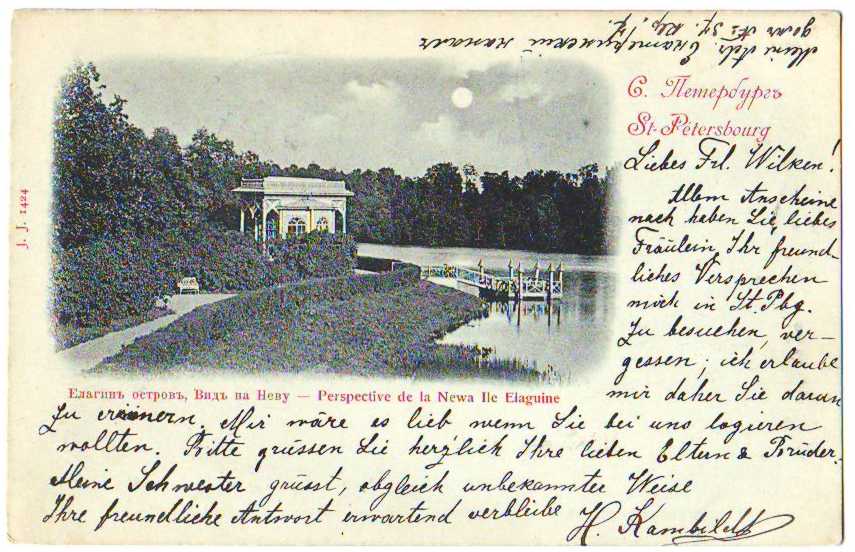 Mein Adr. Екатерининский каналъ
домъ № 37. Кв. 7.
С. Петербургъ
St-Pétersbourg
J. J. 1424
Liebes Frl. Wilken!
Allem Anscheine
nach haben Sie, liebes
Fräulein, Ihr freund-
liches Versprechen
mich in St. Pbg.
zu besuchen, ver-
gessen; ich erlaube
mir daher Sie daran
Елагинъ островъ, Видъ на Неву — Perspective de la Newa Ile Elaguine
zu erinnern. Mir wäre es lieb wenn Sie bei uns logieren
wollten. Bitte grüssen Sie herzlich Ihre lieben Eltern & Brüder.
Meine Schwester grüsst, obgleich unbekannter Weise
Ihre freundliche Antwort erwartend verbleibe H. Kambildt